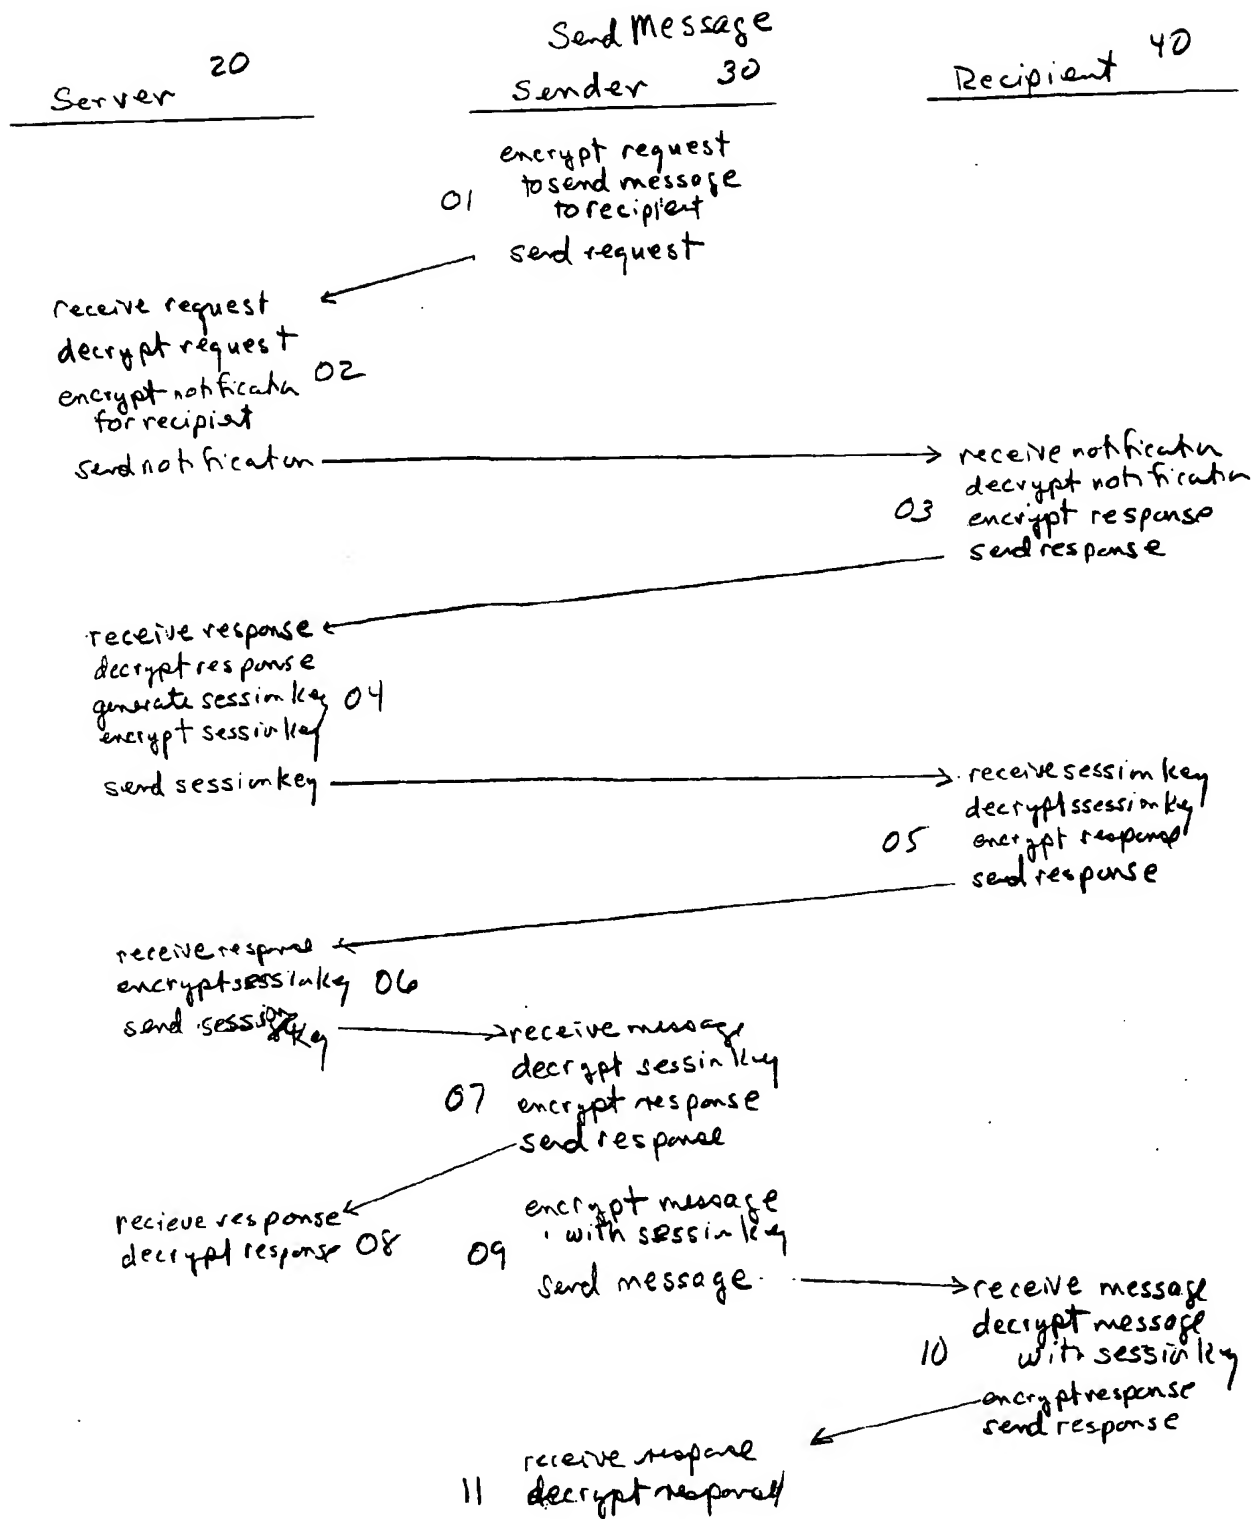 Send Message
Server 20
Sender 30
Recipient 40
encrypt request
to send message
to recipient
01
send request
receive request
decrypt request
encrypt notification
for recipient
02
send notification
receive notification
decrypt notification
03
encrypt response
send response
receive response
decrypt response
generate session key
04
encrypt session key
send session key
receive session key
decrypt ssession key
05
encrypt response
send response
receive response
encrypt session key 06
send session key
receive message
decrypt session key
07
encrypt response
send response
recieve response
decrypt response 08
encrypt message
with session key
09
send message
receive message
decrypt message
10
with session key
encrypt response
send response
receive response
11
decrypt response